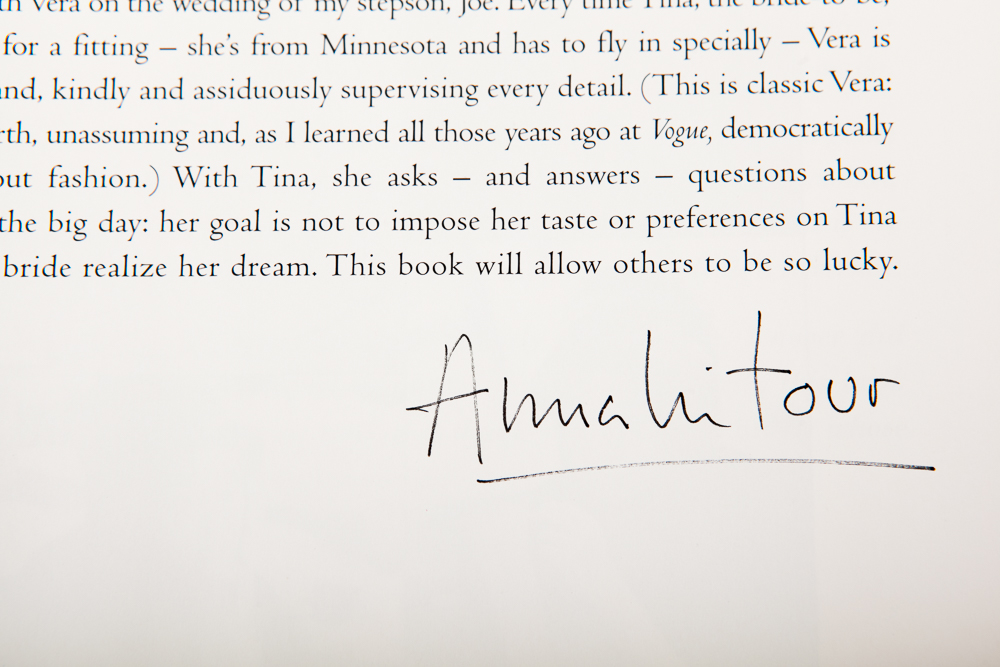 Vera on the wedding of my stepson, Joe. Every time Tina, the bride to be,
for a fitting – she's from Minnesota and has to fly in specially – Vera is
and, kindly and assiduously supervising every detail. (This is classic Vera:
rth, unassuming and, as I learned all those years ago at Vogue, democratically
out fashion.) With Tina, she asks – and answers – questions about
the big day: her goal is not to impose her taste or preferences on Tina
bride realize her dream. This book will allow others to be so lucky.
Anna Wintour